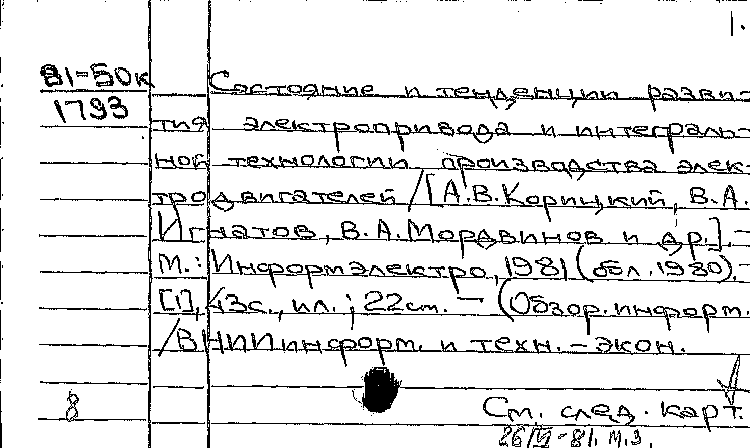 1.
81-50к Состояние и тенденции разви-
1793
тия электропривода и интеграль-
ной технологии производства элек-
тродвигателей /[А.В.Корицкий, В.А.
Игнатов, В.А.Мордвинов и др.].-
М.: Информэлектро, 1981 (обл.1980).-
[1], 43с., ил.; 22см. — (Обзор.информ.
/ВНИИинформ. и техн.-экон.
8
См. след. карт.
26/VI-81. м.з.